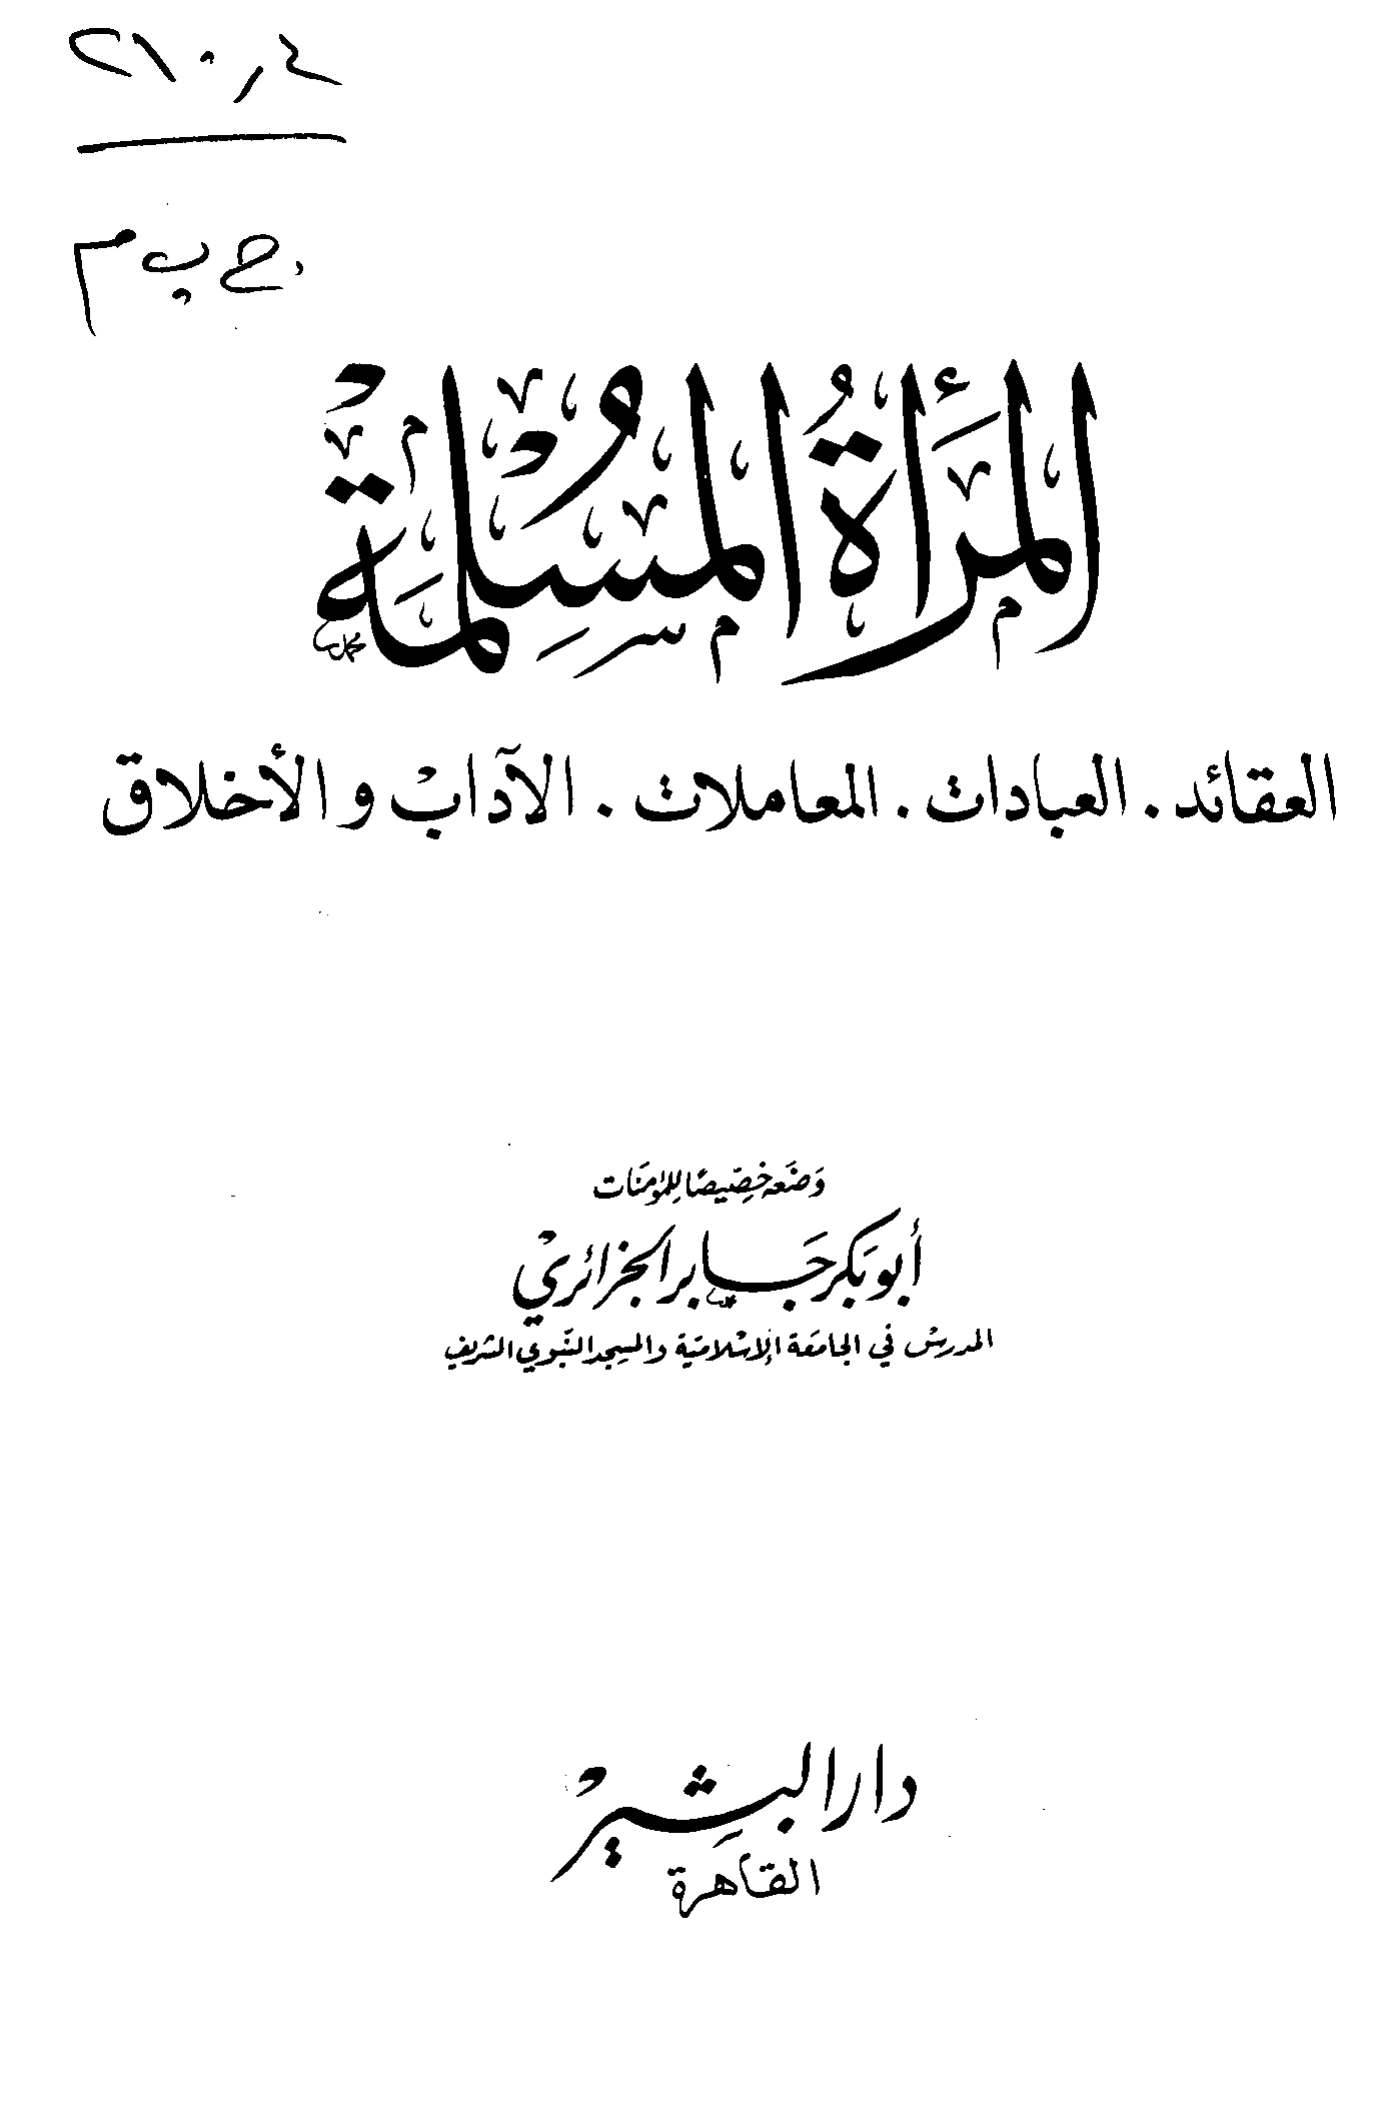 ٢١٠٫٤
ج ب م
المَرْأَةُ المُسْلِمَة
العقائد . العبادات . المعاملات . الآداب والأخلاق
وَضَعَه خصِّيصًا للمؤمنَات
أبو بَكر جَابر الجزائري
المدرس في الجامعَة الإسْلاميَّة والمسجد النَّبوي الشريف
دار البشير
القاهرة